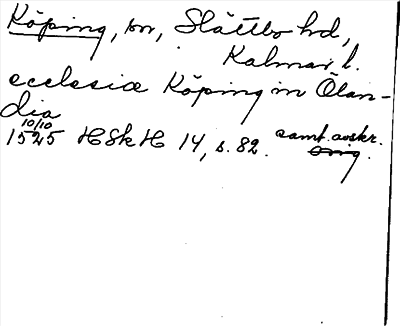 Köping, sn, Slättbo hd,
Kalmar l.
ecclesiæ Köping in Ölan-
dia
10/10
1525 HSkH 14, s. 82. samt. avskr.
orig.